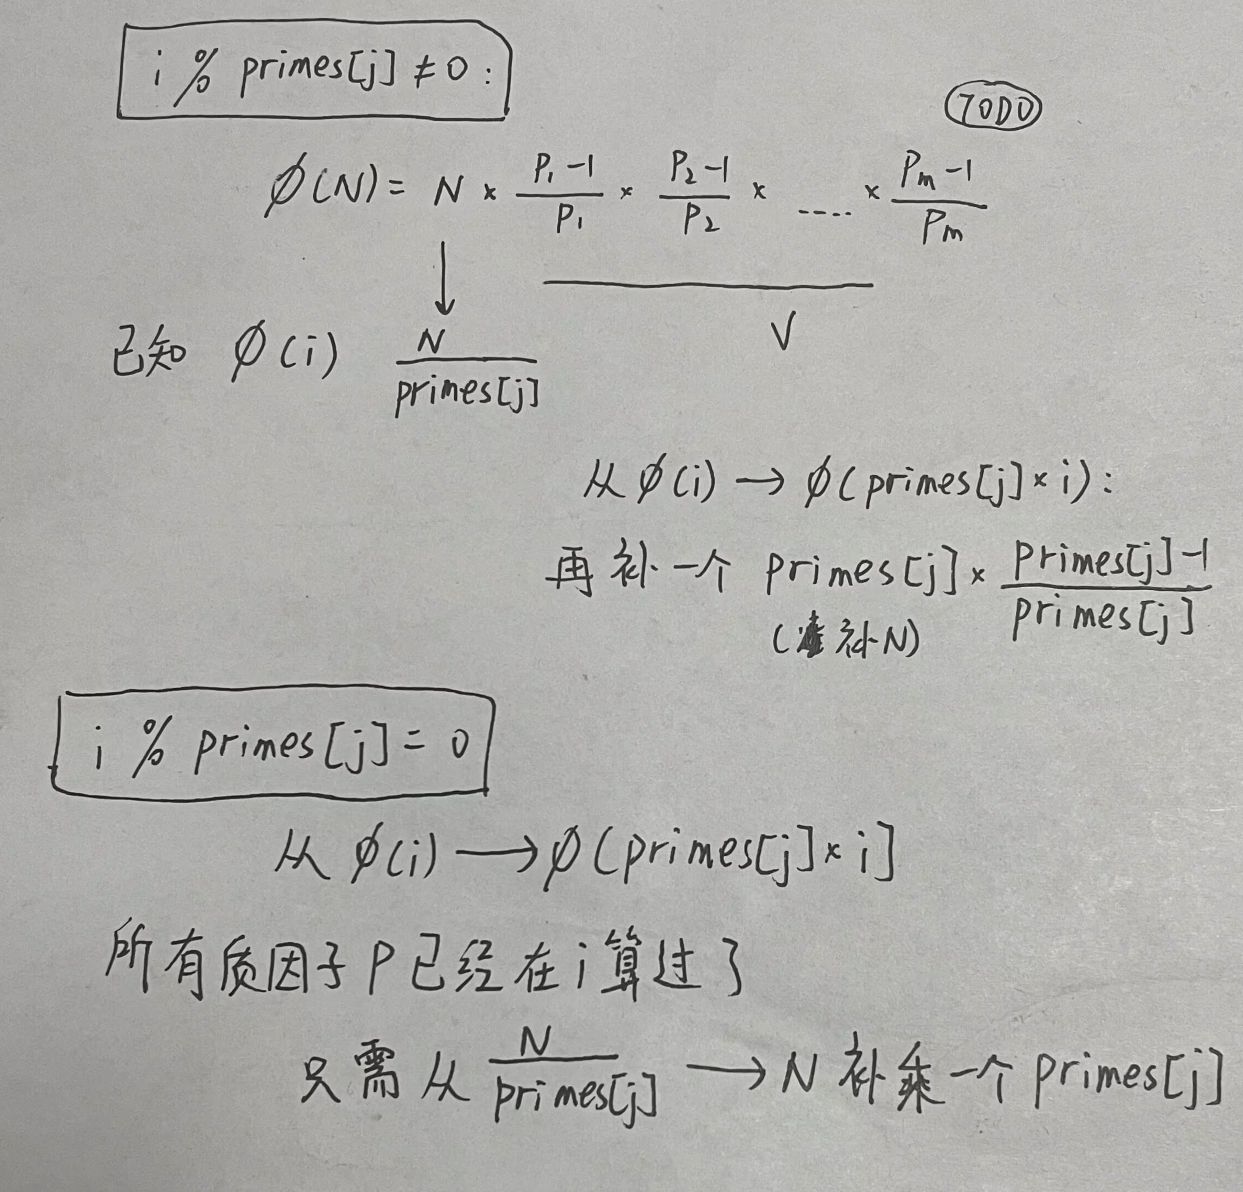 i % primes[j] ≠ 0 :
TODO
ϕ(N) = N × (P₁-1)/P₁ × (P₂-1)/P₂ × .... × (Pₘ-1)/Pₘ
已知 ϕ(i) N/primes[j] √
从 ϕ(i) → ϕ(primes[j] × i) :
再补一个 primes[j] × (primes[j]-1)/primes[j]
(补N)
i % primes[j] = 0
从 ϕ(i) → ϕ(primes[j] × i]
所有质因子P已经在i算过了
只需从 N/primes[j] → N 补乘一个 primes[j]